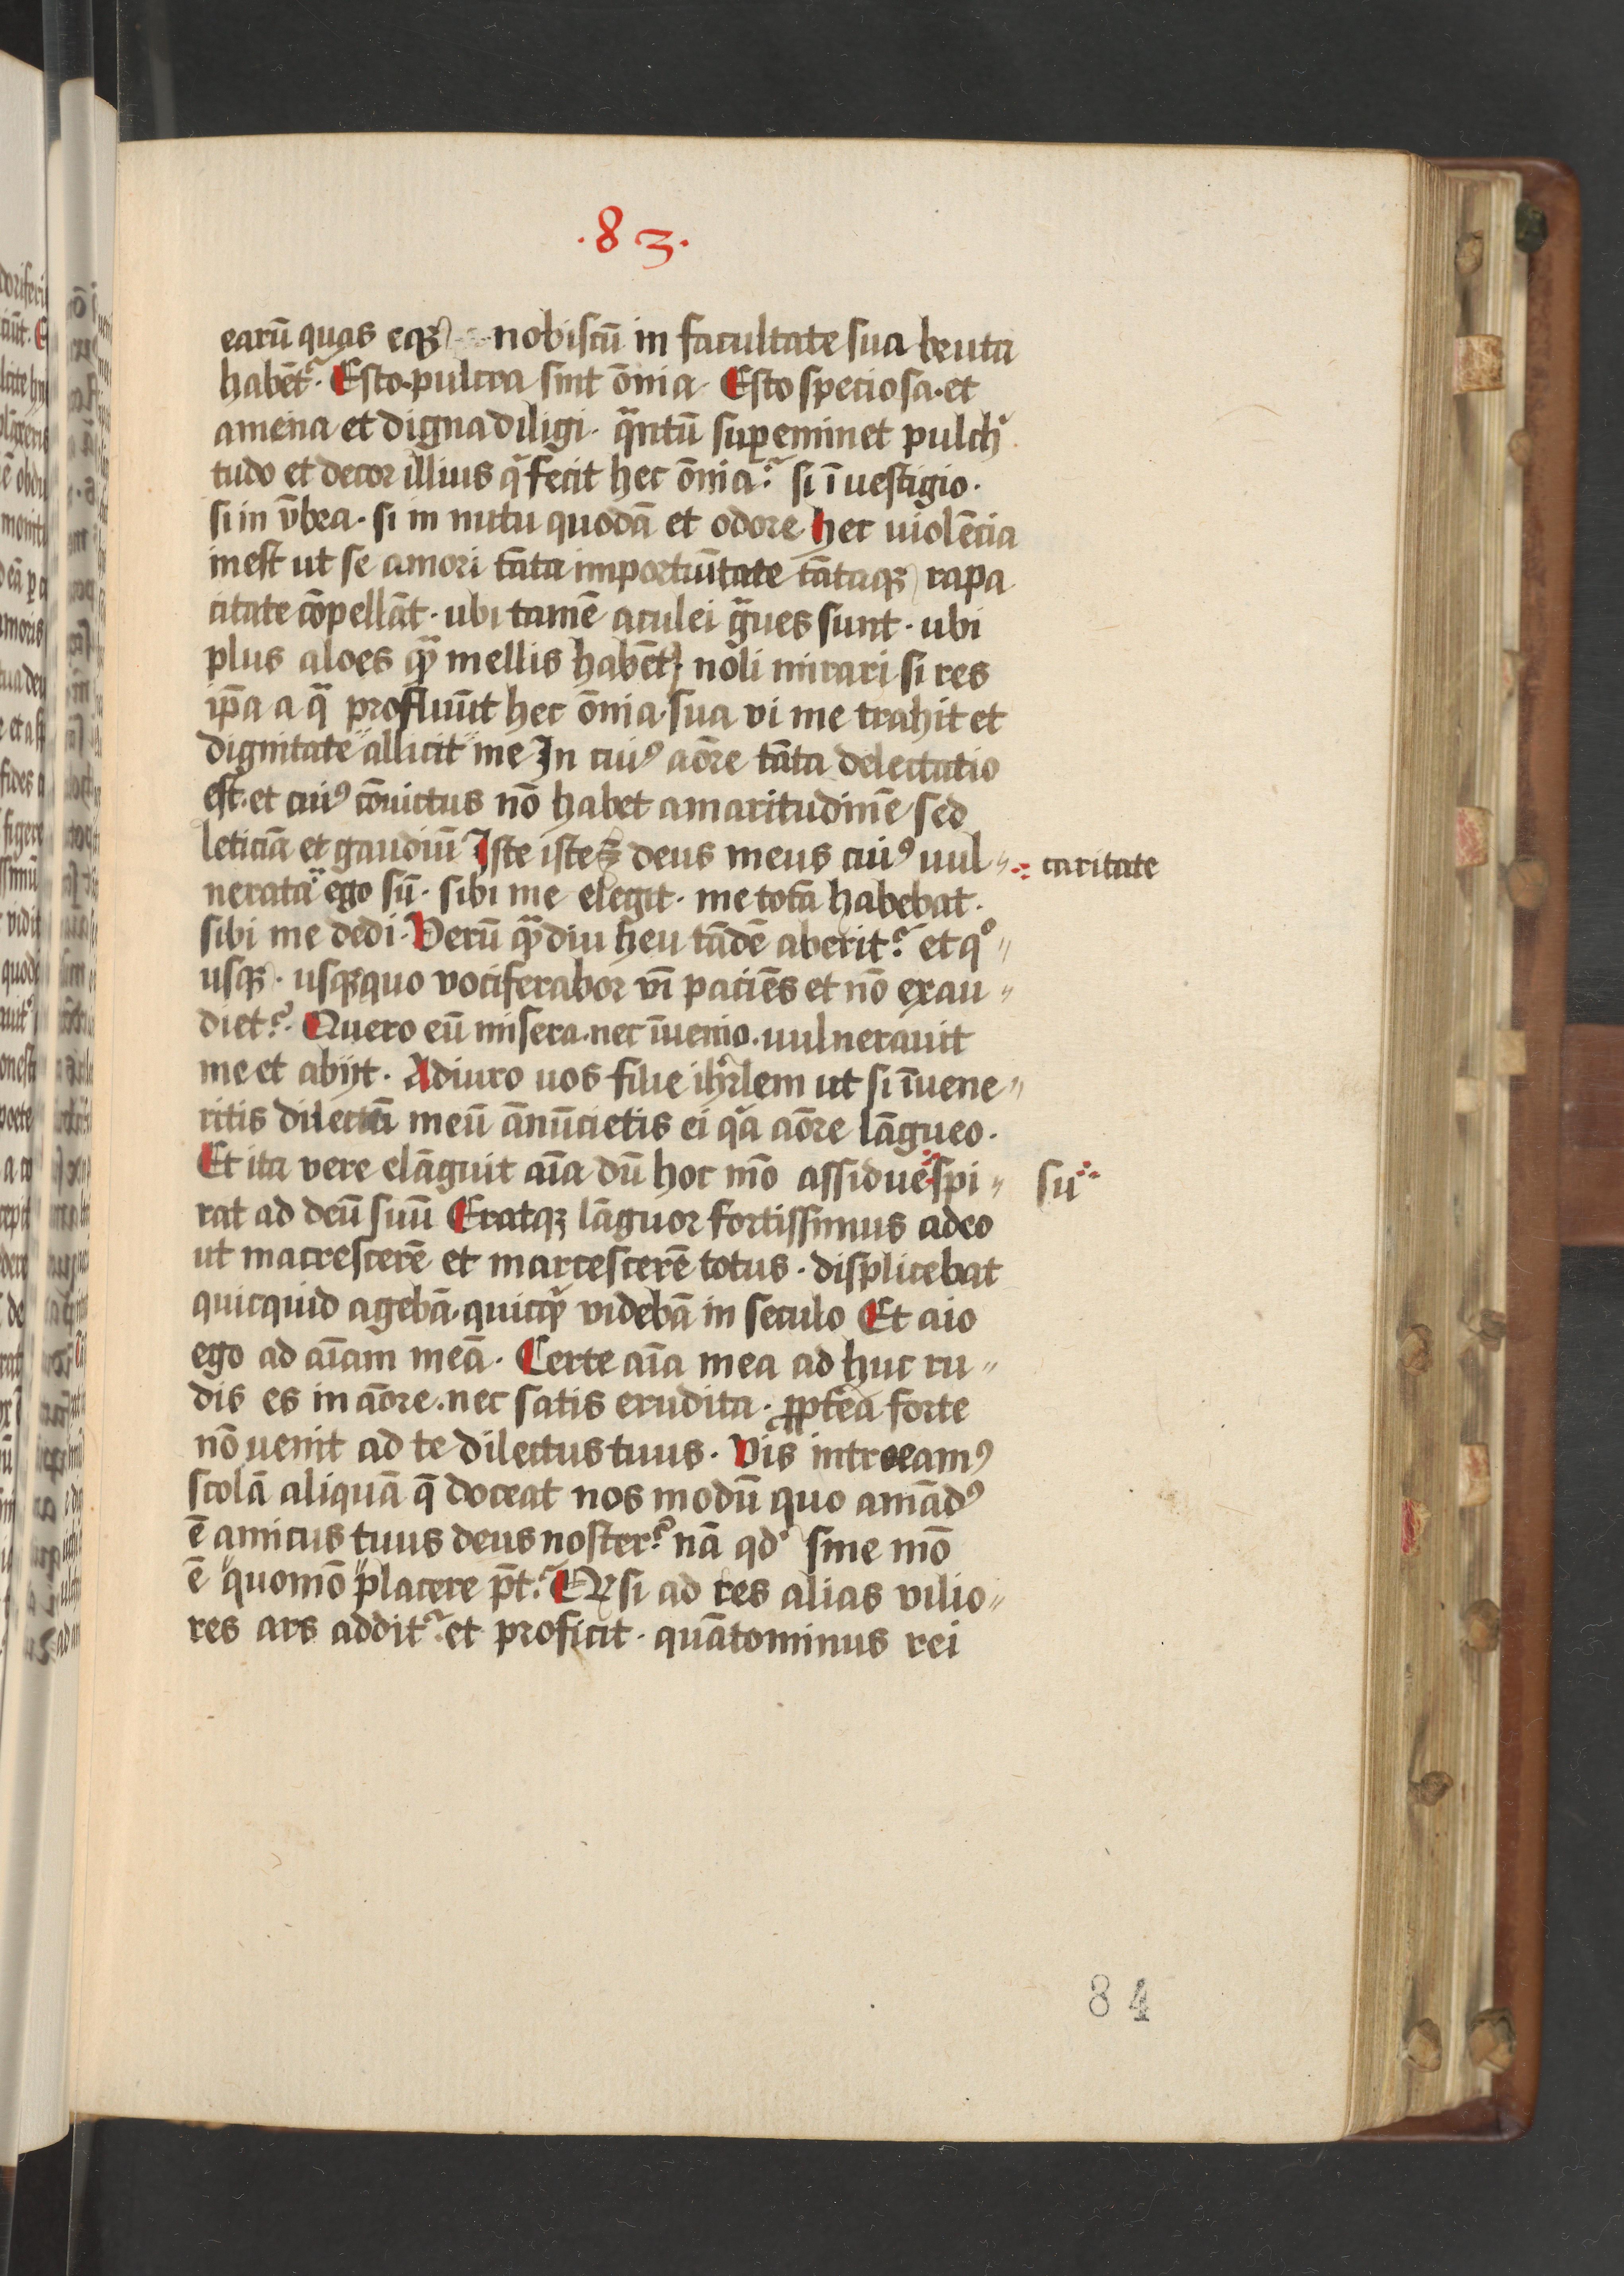 .83.
earū quas eqꝫ nobiscū in facultate sua bruta
habēt᷑. Esto pulcra sint ōnia. Esto speciosa. et
amena et digna diligi. qᷓntū suꝑeminet pulchͥ
tudo et decor illius qͥ fecit hec ōnia? si ī uestigio.
si in vm̄bra. si in nutu quodā et odore hec violēcia
inest ut se amori tāta importūitate tātaqꝫ rapa
citate cōpellāt. ubi tamē aculei gᷓues sunt. ubi
plus aloes qᷓꝫ mellis habēt᷑. noli mirari si res
ip̄a a qᷓ profluūt hec ōnia. sua vi me trahit et
dignitate "allicit "me In cuiꝰ aōre tāta delectatio
est. et cuiꝰ cōuictus nō habet amaritudinē sed
leticiā et gaudiū Iste iste ē deus meus cuiꝰ uul〃 ⁖ caritate
nerata ego sū. sibi me elegit. me totā habebat.
sibi me dedi. Verū qᷓꝫdiu heu tādē aberit? et qͦ〃
usqꝫ. usqꝫquo vociferabor vī paciēs et nō exau〃
diet? Quero eū misera. nec īuenio. uulnerauit
me et abijt. Adiuro uos filie ihrlem ut si īuene〃
ritis dilectū meū ānūcietis ei qͣ aōre lāgueo.
Et ita vere elāguit aīa dū hoc mō assidue spi〃 su⁖
rat ad deū suū Eratqꝫ lāguor fortissimus adeo
ut macrescerē et marcescerē totus. displicebat
quicquid agebā. quicqͥd videbā in seculo Et aio
ego ad aīam meā. Certe aīa mea ad huc ru〃
dis es in aōre. nec satis erudita. ꝓpt̄ea forte
nō uenit ad te dilectus tuus. Vis introeamꝰ
scolā aliquā q̄ doceat nos modū quo amādꝰ
ē amicus tuus deus noster? nā qd' sine mō
ē "quomō "placere p̄t? Et si ad res alias vilio〃
res ars addit᷑ et proficit. quāto minus rei
84